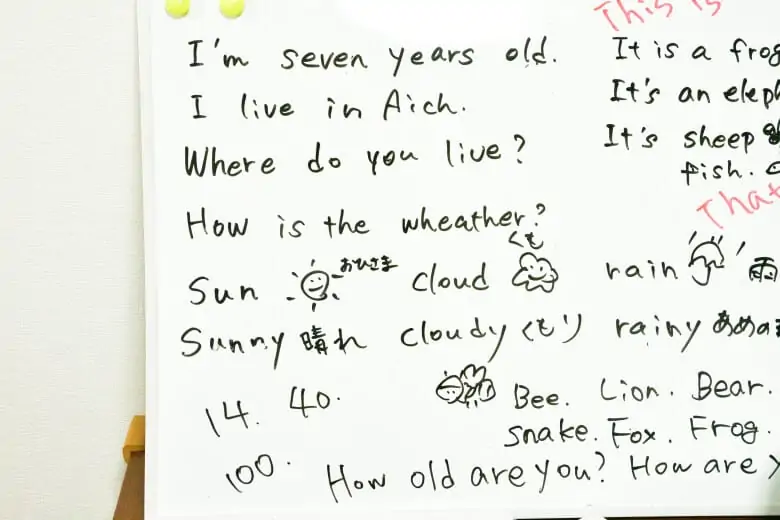 This is
I'm seven years old.
It is a frog
I live in Aich.
It's an eleph
Where do you live?
It's sheep
fish.
That
How is the wheather?
くも
Sun おひさま cloud rain 雨
Sunny 晴れ cloudy くもり rainy あめの
14. 40.
Bee. Lion. Bear.
snake. Fox. Frog.
100. How old are you? How are y